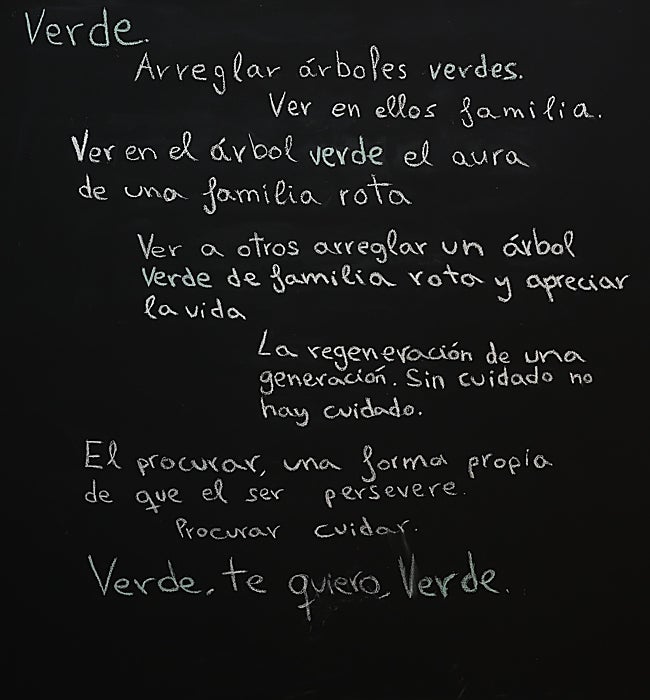 Verde.
Arreglar árboles verdes.
Ver en ellos familia.
Ver en el árbol verde el aura
de una familia rota
Ver a otros arreglar un árbol
verde de familia rota y apreciar
la vida
La regeneración de una
generación. Sin cuidado no
hay cuidado.
El procurar, una forma propia
de que el ser persevere.
Procurar cuidar.
Verde, te quiero, Verde.